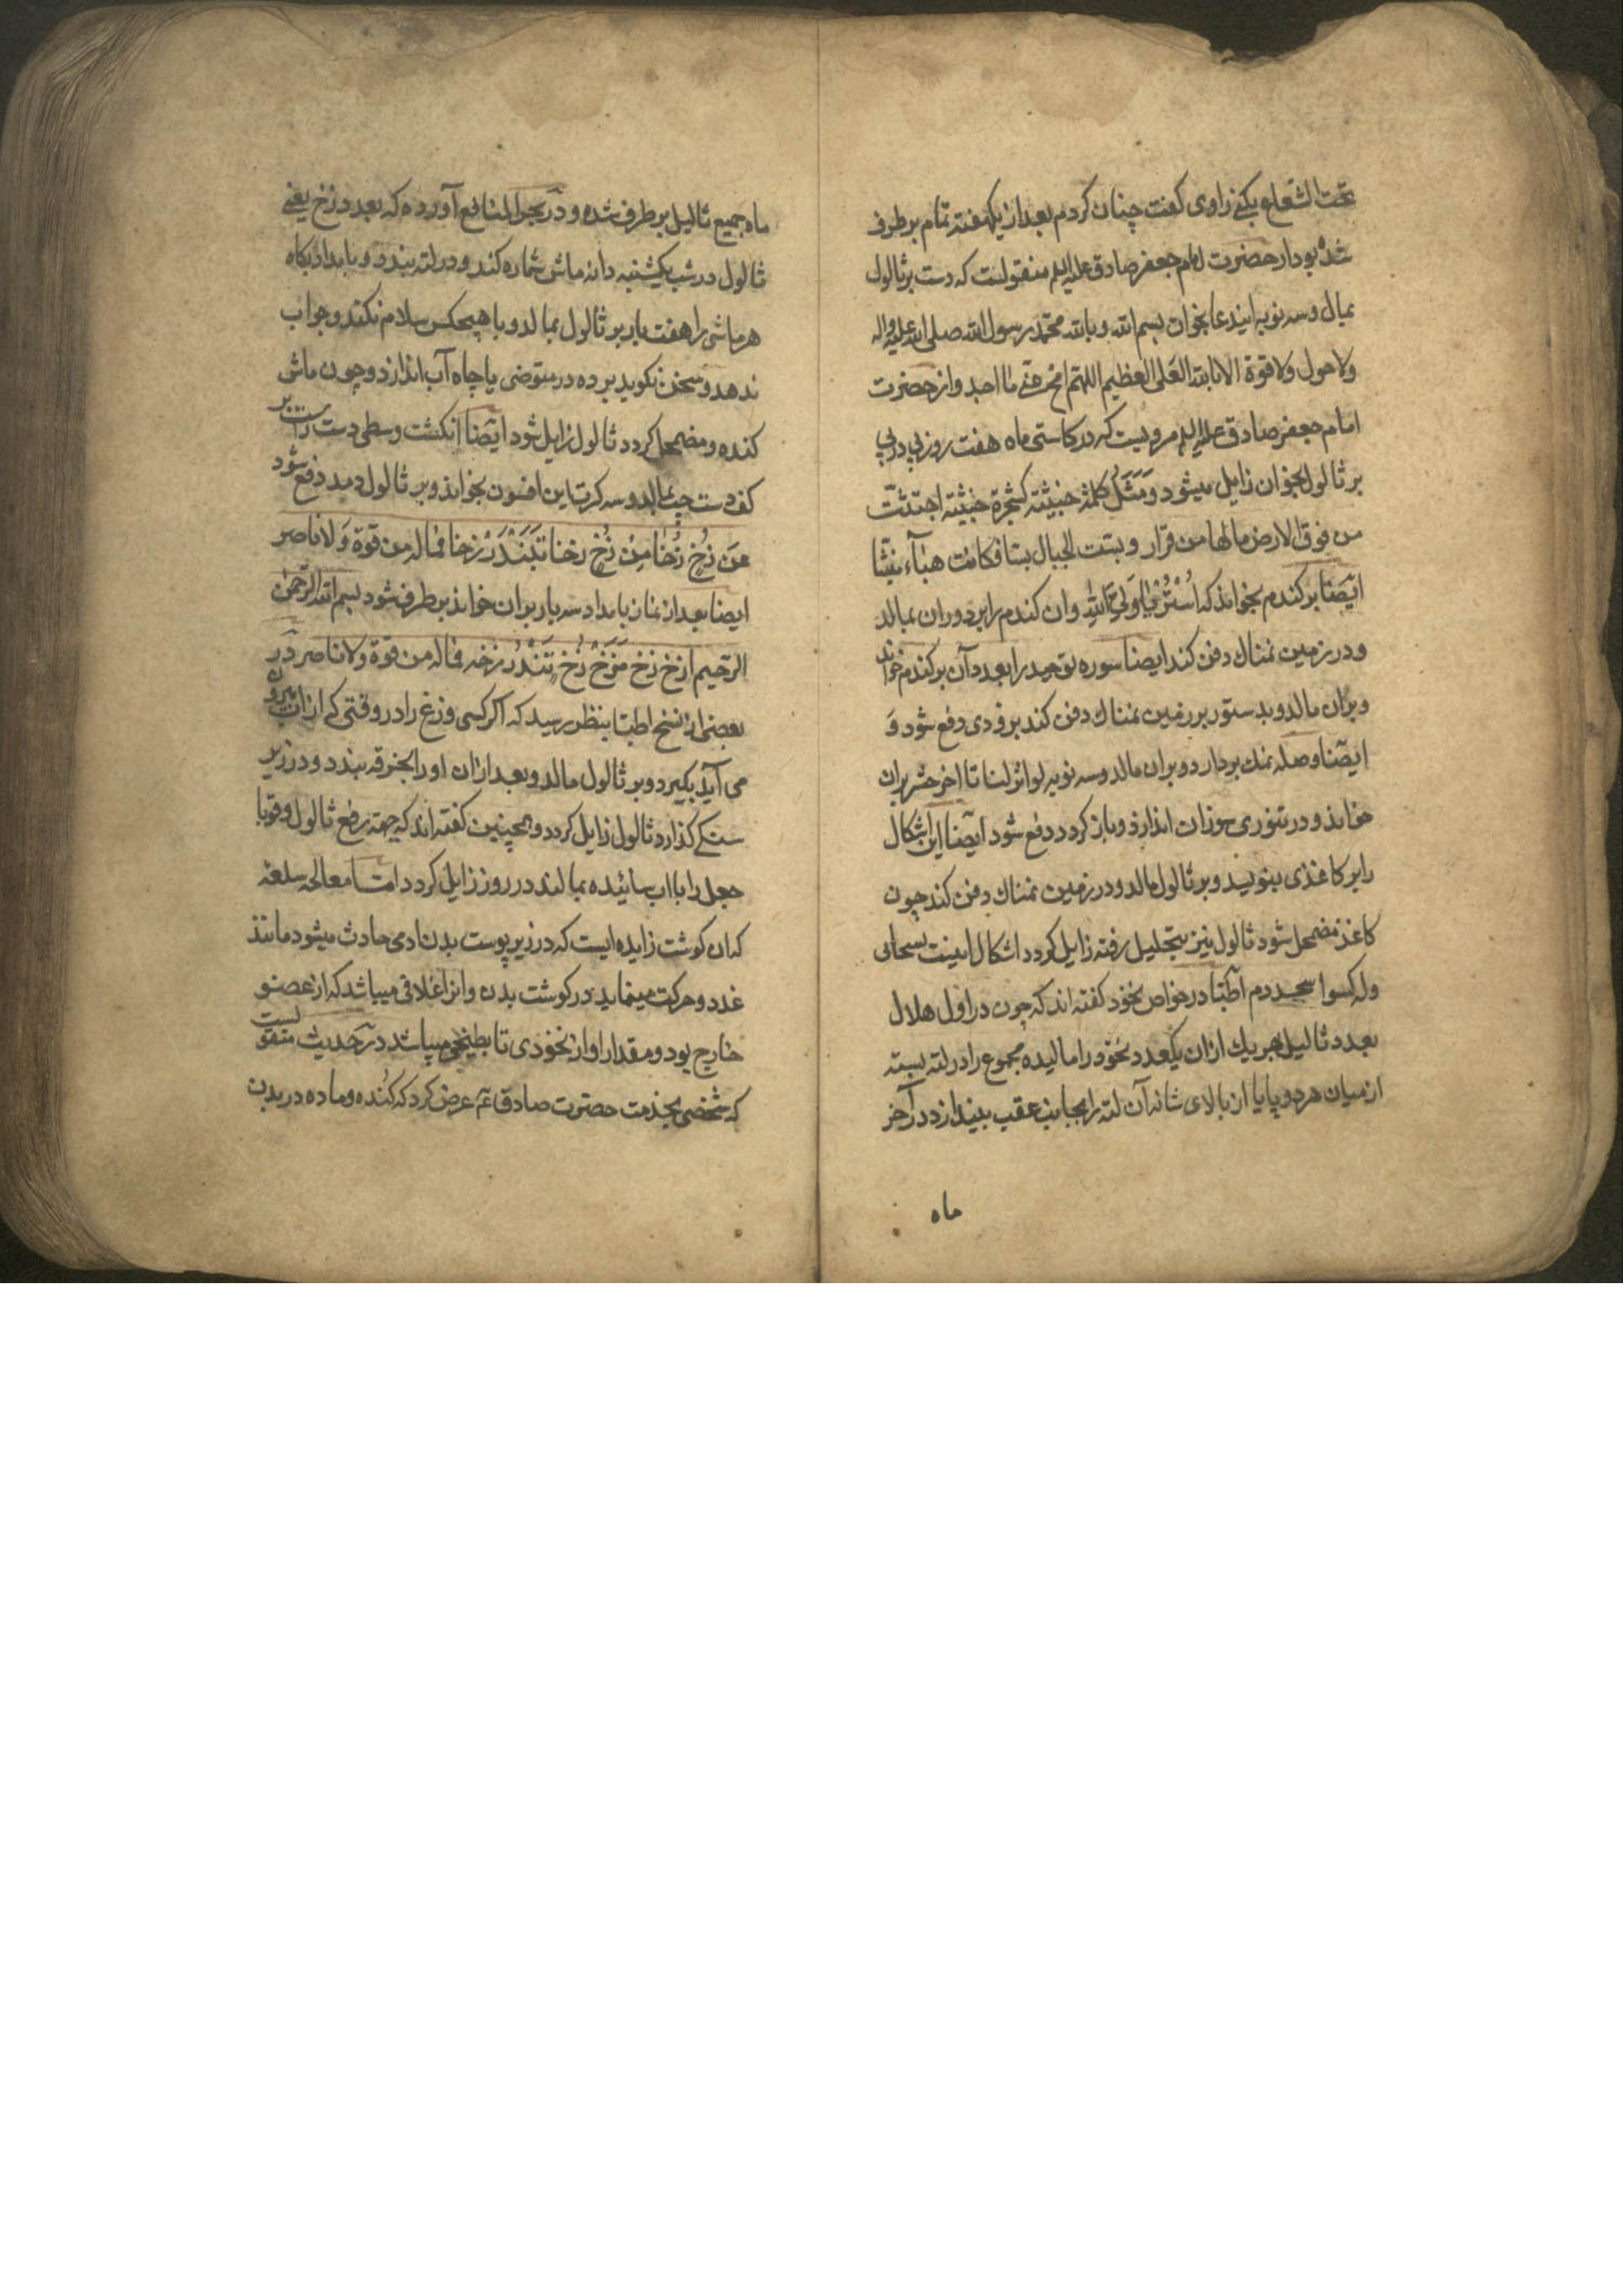 تحت الشعاع بکنی راوی کفت چنان کردم بعد از یکهفته تمام برطرف
شده بود از حضرت امام جعفر صادق علیه السلم منقولست که دست بر ثالول
بمال و سه نوبه ایندعا بخوان بسم الله و بالله محمد رسول الله صلی الله علیه واله
ولا حول ولا قوة الا بالله العلی العظیم اللهم امح عنی ما اجد و از حضرت
امام جعفر صادق علیه السلم مرویست که در کاستی ماه هفت روز پی در پی
بر ثالول بخوان زایل میشود وَمَثَلُ کلمة خبیثة کشجرة خبیثة اجتثت
من فوق الارض مالها من قرار و بست الجبال بسا فکانت هباء منبثا
ایضا بر کندم بخواند که و ان کندم را بر دور ان بمالد
و در زمین نمناك دفن کند ایضا سوره توحید را بعدد آن بر کندم خواند
و بران مالد و بدستور بر زمین نمناك دفن کند بزودی دفع شود وَ
ایضا وصله نمك بردارد و بران مالد و سه نوبه لو انزلنا تا اخر حشر بران
خواند و در تنوری سوزان اندازد و باز کردد دفع شود ایضا این اشکال
را بر کاغذی بنویسد و بر ثالول مالد و در زمین نمناك دفن کند چون
کاغذ مضمحل شود ثالول نیز بتحلیل رفته زایل کردد اشکال اینست
اطبا در خواص نخود کفته اند که چون در اول هلال
بعدد ثالیل بهر یك ازان یکعدد نخود را مالیده مجموع را در لته بسته
از میان هر دو پا یا از بالای شانه آن لته را بجانب عقب بیندازد در آخر
ماه
ماه جمیع ثالیل برطرف شده و در بحر المنافع آورده که بعدد زخ یعنی
ثالول در شب یکشنبه دانه ماش شماره کند و در لته بندد و بامداد پکاه
هر ماشی را هفت بار بر ثالول بمالد و با هیچکس سلام نکند و جواب
ندهد و سخن نکوید برده در متوضی یا چاه آب اندازد و چون ماش
کنده و مضمحل کردد ثالول زایل شود ایضا انکشت وسطی دست راست بر
کف دست چپ بمالد و سه کرت این افسون بخواند و بر ثالول دمد دفع شود
مِن زُخٍ زُخا مِن زُخٍ زخا فماله من قوة وَلا ناصر
ایضا بعد از نماز بامداد سه بار بران خواند برطرف شود بسم الله الرحمن
الرحیم ازخ زخ زخ فماله من قوة ولا ناصر در
بعضی از نسخ اطبا بنظر رسید که اکر کسی وزغ را در وقتی که از اب بیرون
می آید بکیرد و بر ثالول مالد و بعد ازان او را بخرقه بندد و در زیر
سنکی کذارد ثالول زایل کردد و همچنین کفته اند که جهة رفع ثالول و قوبا
جعل را با اب سائیده بمالند در روز زایل کردد اما معالجه سلعه
که ان کوشت زایده ایست که در زیر پوست بدن ادمی حادث میشود مانند
غدد و حرکت مینماید در کوشت بدن و انرا غلافی میباشد که از عضو
خارج بود و مقدار او از نخودی تا بطیخی میباشد در حدیث منقولست
که شخصی بخدمت حضرت صادق ع عرض کرد که کُنده و ماده در بدن